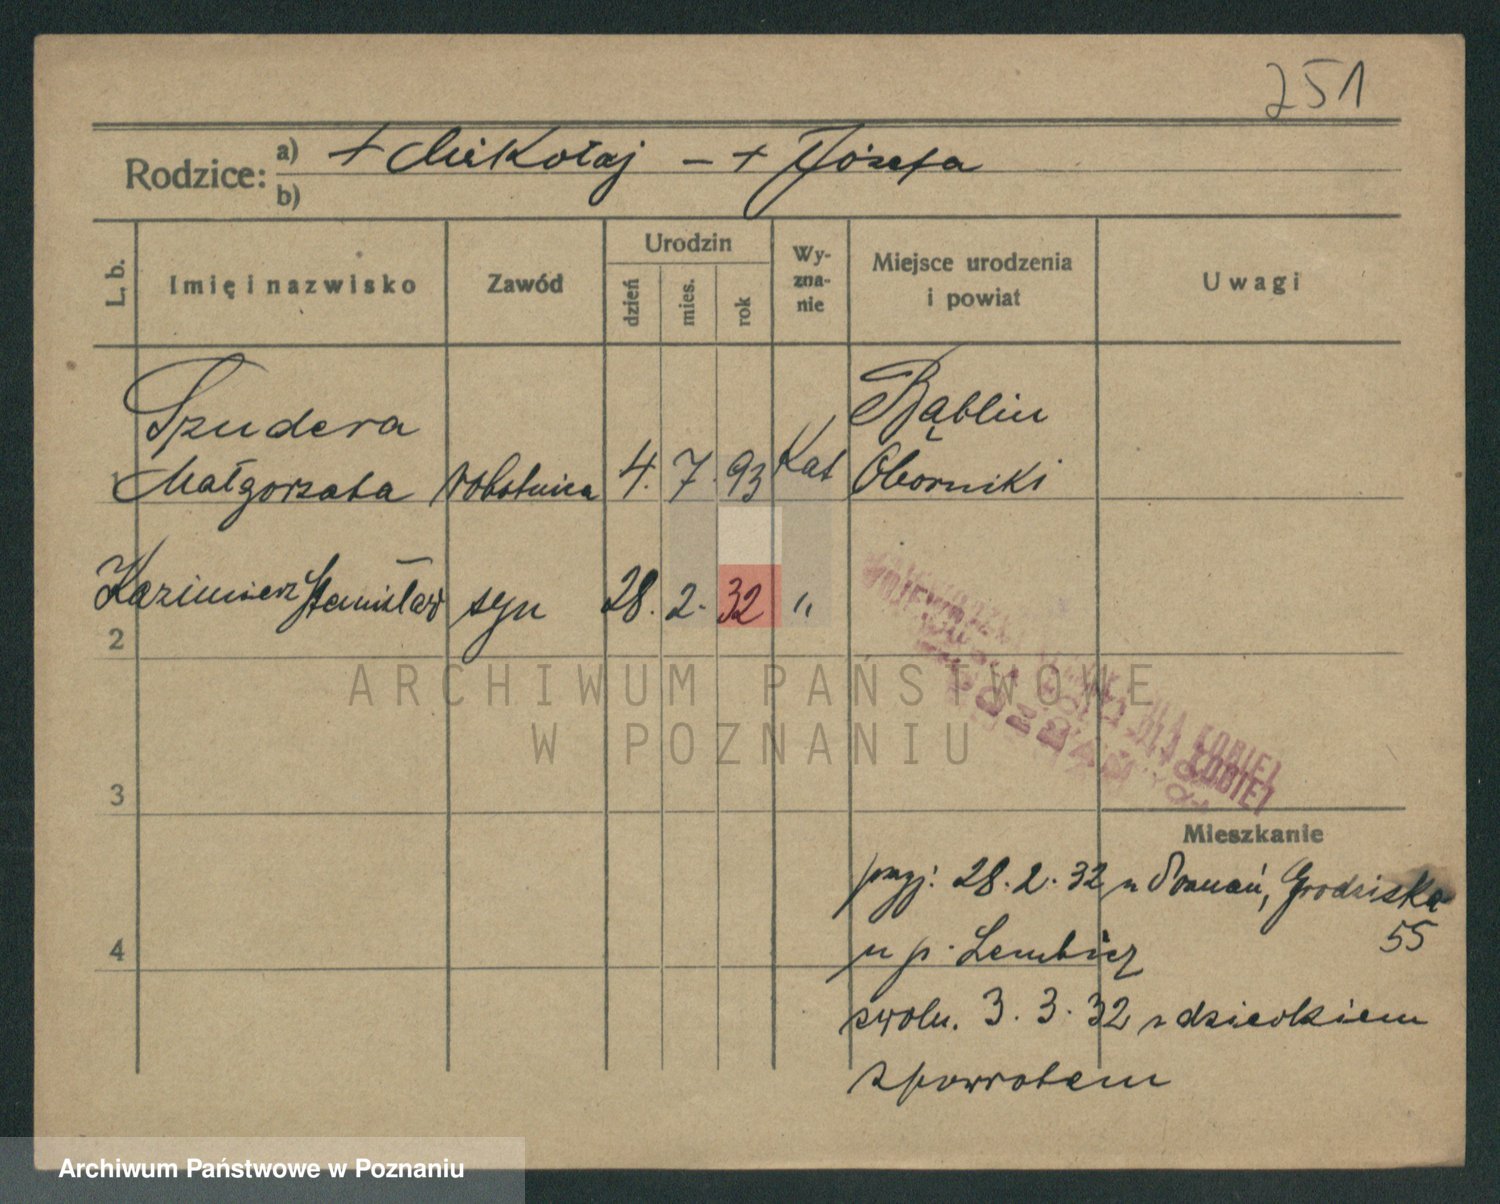 251
Rodzice: a) + Mikołaj – + Józefa
b)
L. b.
Imię i nazwisko
Zawód
Urodzin
dzień
mies.
rok
Wy-
zna-
nie
Miejsce urodzenia
i powiat
Uwagi
Szudera Bąblin
1 Małgorzata robotnica 4. 7. 93 Kat Oborniki
Kazimierz Stanisław syn 28. 2. 32 "
2
ARCHIWUM PAŃSTWOWE
W POZNANIU
DLA KOBIET
3
Mieszkanie
przyj. 28. 2. 32 z Poznań, Grodziska
55
4 u p. Lembicz
zwoln. 3. 3. 32 z dzieckiem
zpowrotem
Archiwum Państwowe w Poznaniu